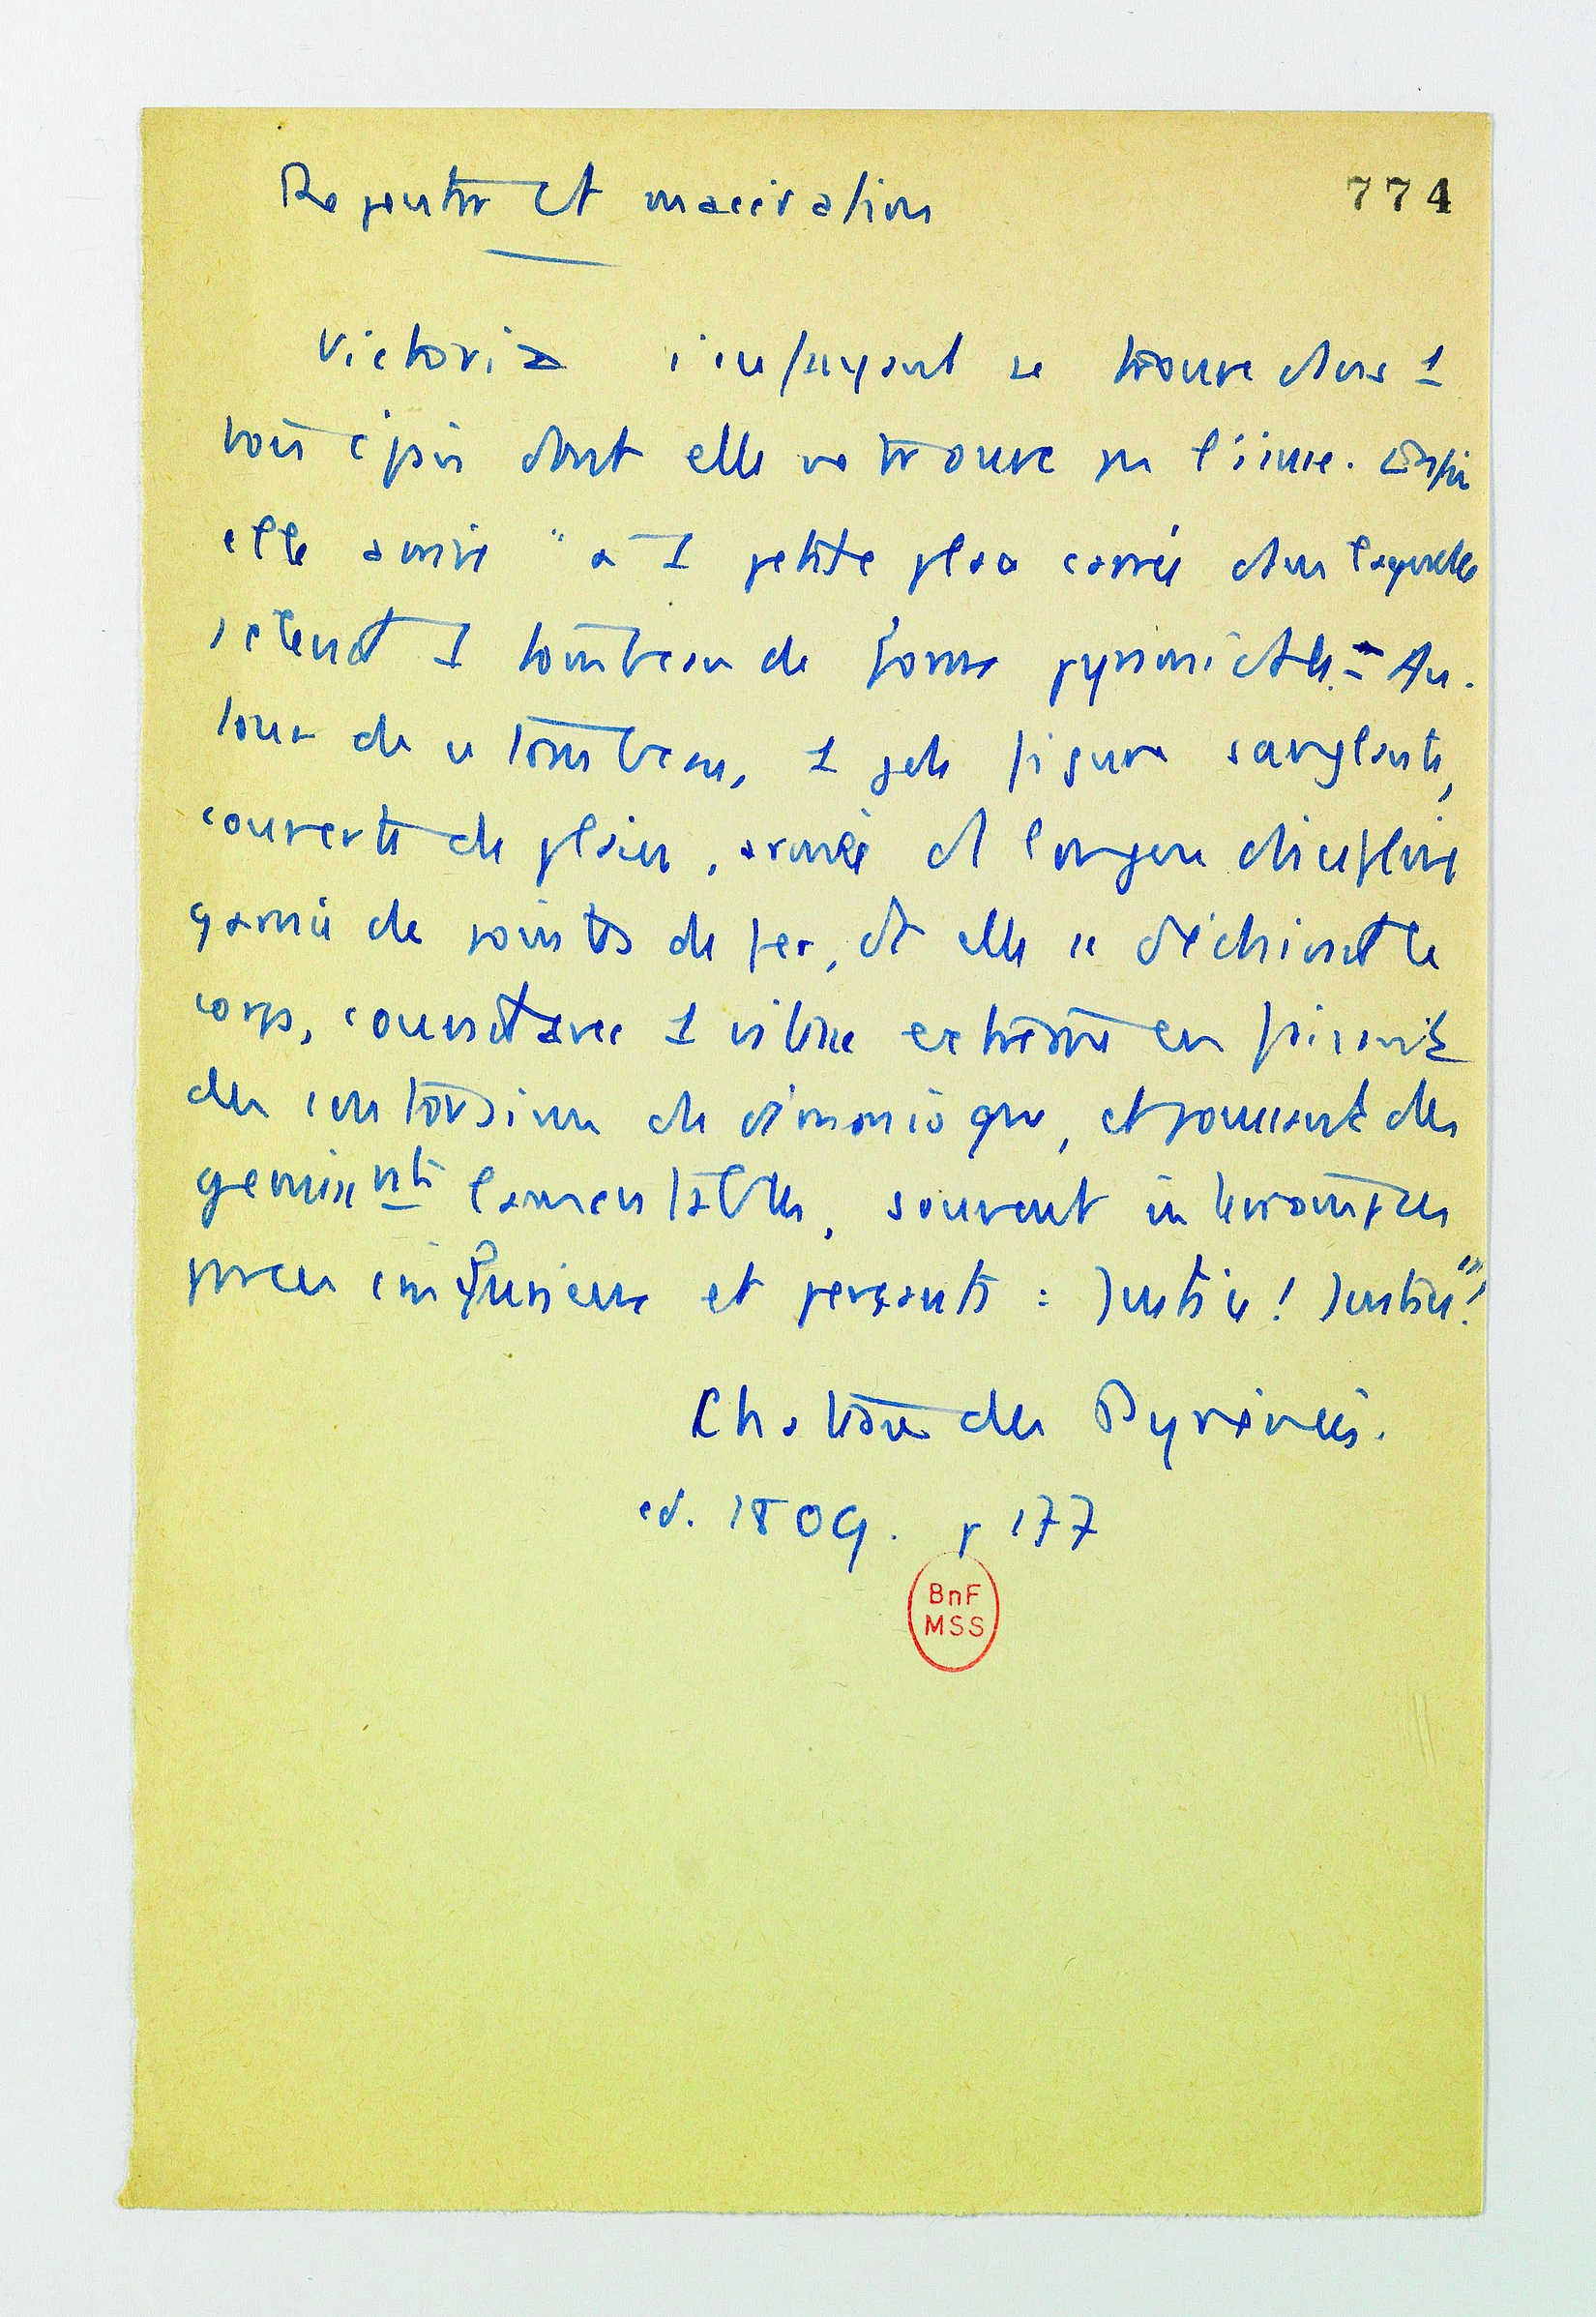 Repentir et macération
774
Victoria s'enfuyant se trouve dans 1
bois épais dont elle ne trouve pas l'issue. Enfin
elle arrive "à 1 petite place carrée dans laquelle
s'étend 1 tombeau de forme pyramidale." Au-
tour de ce tombeau, 1 pale figure sanglante,
couverte de plaies, armée d longue discipline
garnie de pointes de fer, et elle se déchirait le
corps, courait avec 1 vitesse extrême en faisant
des contorsions de démoniaque, et poussant des
gemissnts lamentables, souvent interrompus
par ces et perçants : Justice ! Justice" !
Chateau des Pyrénées.
ed. 1809. p 177
BnF
MSS